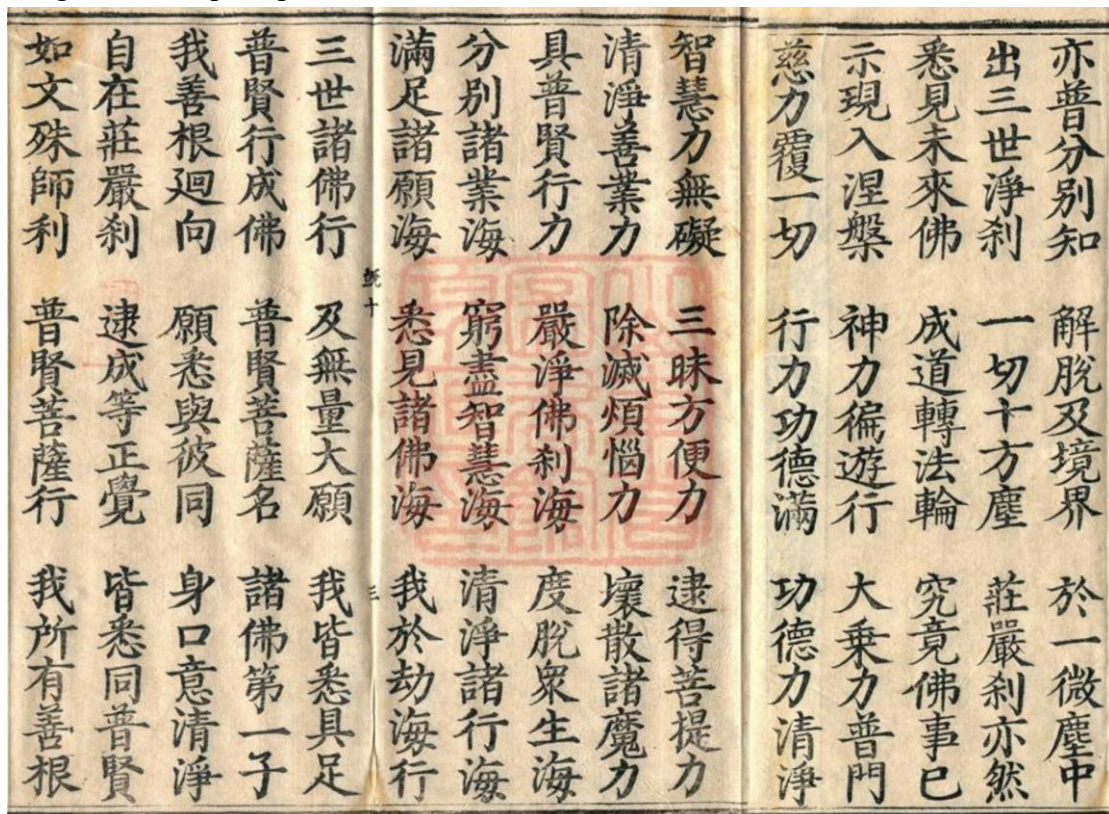 亦普分別知 解脫及境界 於一微塵中
出三世淨刹 一切十方塵 莊嚴刹亦然
悉見未來佛 成道轉法輪 究竟佛事已
示現入涅槃 神力徧遊行 大乗力普門
慈力覆一切 行力功德滿 功德力清淨
智慧力無礙 三昧方便力 逮得菩提力
清淨善業力 除滅煩惱力 壞散諸魔力
具普賢行力 嚴淨佛刹海 度脫衆生海
分別諸業海 窮盡智慧海 清淨諸行海
滿足諸願海 悉見諸佛海 我於劫海行
三
三世諸佛行 及無量大願 我皆悉具足
普賢行成佛 普賢菩薩名 諸佛第一子
我善根廻向 願悉與彼同 身口意清淨
自在莊嚴刹 逮成等正覺 皆悉同普賢
如文殊師利 普賢菩薩行 我所有善根